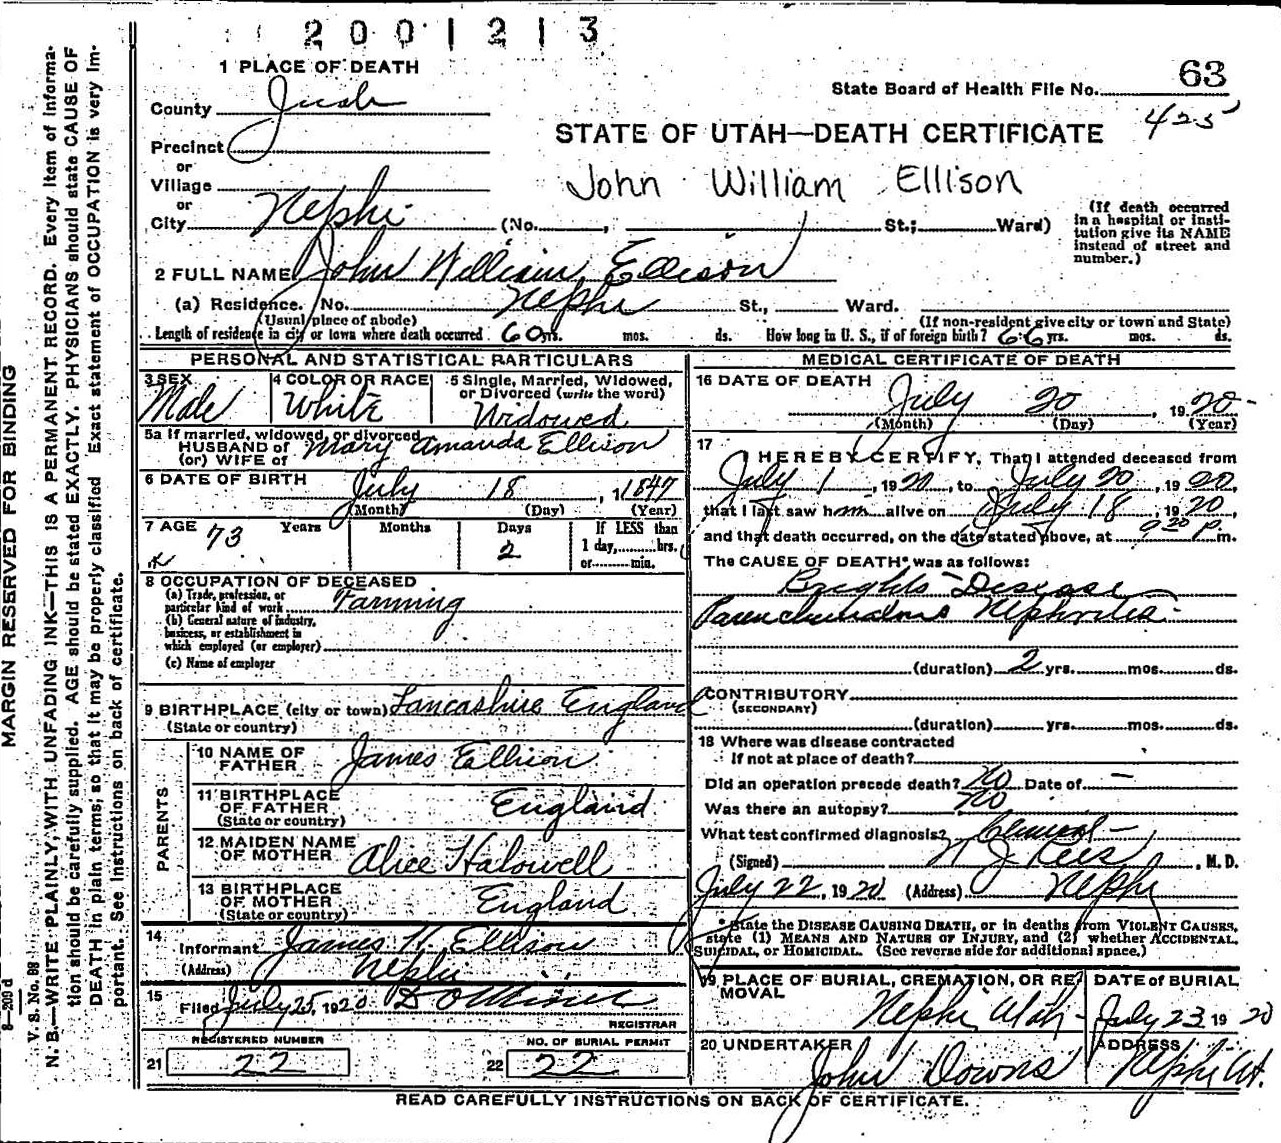 2001213
1 PLACE OF DEATH
State Board of Health File No. 63
425
County Juab
STATE OF UTAH—DEATH CERTIFICATE
Precinct
or
Village
John William Ellison
or
City Nephi (No. , St.; Ward)
(If death occurred
in a hospital or insti-
tution give its NAME
instead of street and
number.)
2 FULL NAME John William Ellison
(a) Residence. No. Nephi St., Ward.
(Usual place of abode) (If non-resident give city or town and State)
Length of residence in city or town where death occurred 60 yrs. mos. ds. How long in U. S., if of foreign birth? 66 yrs. mos. ds.
PERSONAL AND STATISTICAL PARTICULARS
3 SEX
Male
4 COLOR OR RACE
White
5 Single, Married, Widowed,
or Divorced (write the word)
Widowed
5a If married, widowed, or divorced
HUSBAND of Mary Amanda Ellison
(or) WIFE of
6 DATE OF BIRTH
July 18, 1 1847
(Month) (Day) (Year)
7 AGE 73 Years Months Days 2
If LESS than
1 day, hrs.
or min.
8 OCCUPATION OF DECEASED
(a) Trade, profession, or
particular kind of work Farming
(b) General nature of industry,
business, or establishment in
which employed (or employer)
(c) Name of employer
9 BIRTHPLACE (city or town) Lancashire England
(State or country)
PARENTS
10 NAME OF
FATHER James Ellison
11 BIRTHPLACE
OF FATHER England
(State or country)
12 MAIDEN NAME
OF MOTHER Alice Halowell
13 BIRTHPLACE
OF MOTHER England
(State or country)
14
Informant James W. Ellison
(Address) Nephi
15
Filed July 25, 1920
REGISTRAR
REGISTERED NUMBER
21 22
NO. OF BURIAL PERMIT
22 22
MEDICAL CERTIFICATE OF DEATH
16 DATE OF DEATH
July 20, 1920
(Month) (Day) (Year)
17
I HEREBY CERTIFY, That I attended deceased from
July 1, 1920, to July 20, 1920,
that I last saw him alive on July 18, 1920,
and that death occurred, on the date stated above, at 9 20 P. m.
The CAUSE OF DEATH* was as follows:
Brights Disease
Nephritis
(duration) 2 yrs. mos. ds.
CONTRIBUTORY
(SECONDARY)
(duration) yrs. mos. ds.
18 Where was disease contracted
If not at place of death?
Did an operation precede death? no Date of —
Was there an autopsy? no
What test confirmed diagnosis? Clinical
(Signed) Rees, M. D.
July 22, 1920 (Address) Nephi
*State the DISEASE CAUSING DEATH, or in deaths from VIOLENT CAUSES,
state (1) MEANS AND NATURE OF INJURY, and (2) whether ACCIDENTAL,
SUICIDAL, or HOMICIDAL. (See reverse side for additional space.)
19 PLACE OF BURIAL, CREMATION, OR RE-
MOVAL
Nephi Utah
DATE OF BURIAL
July 23 1920
20 UNDERTAKER
John Downs
ADDRESS
Nephi Ut.
READ CAREFULLY INSTRUCTIONS ON BACK OF CERTIFICATE.
MARGIN RESERVED FOR BINDING
V. S. No. 88
N. B.—WRITE PLAINLY, WITH UNFADING INK—THIS IS A PERMANENT RECORD. Every item of informa-
tion should be carefully supplied. AGE should be stated EXACTLY. PHYSICIANS should state CAUSE OF
DEATH in plain terms, so that it may be properly classified. Exact statement of OCCUPATION is very im-
portant. See instructions on back of certificate.